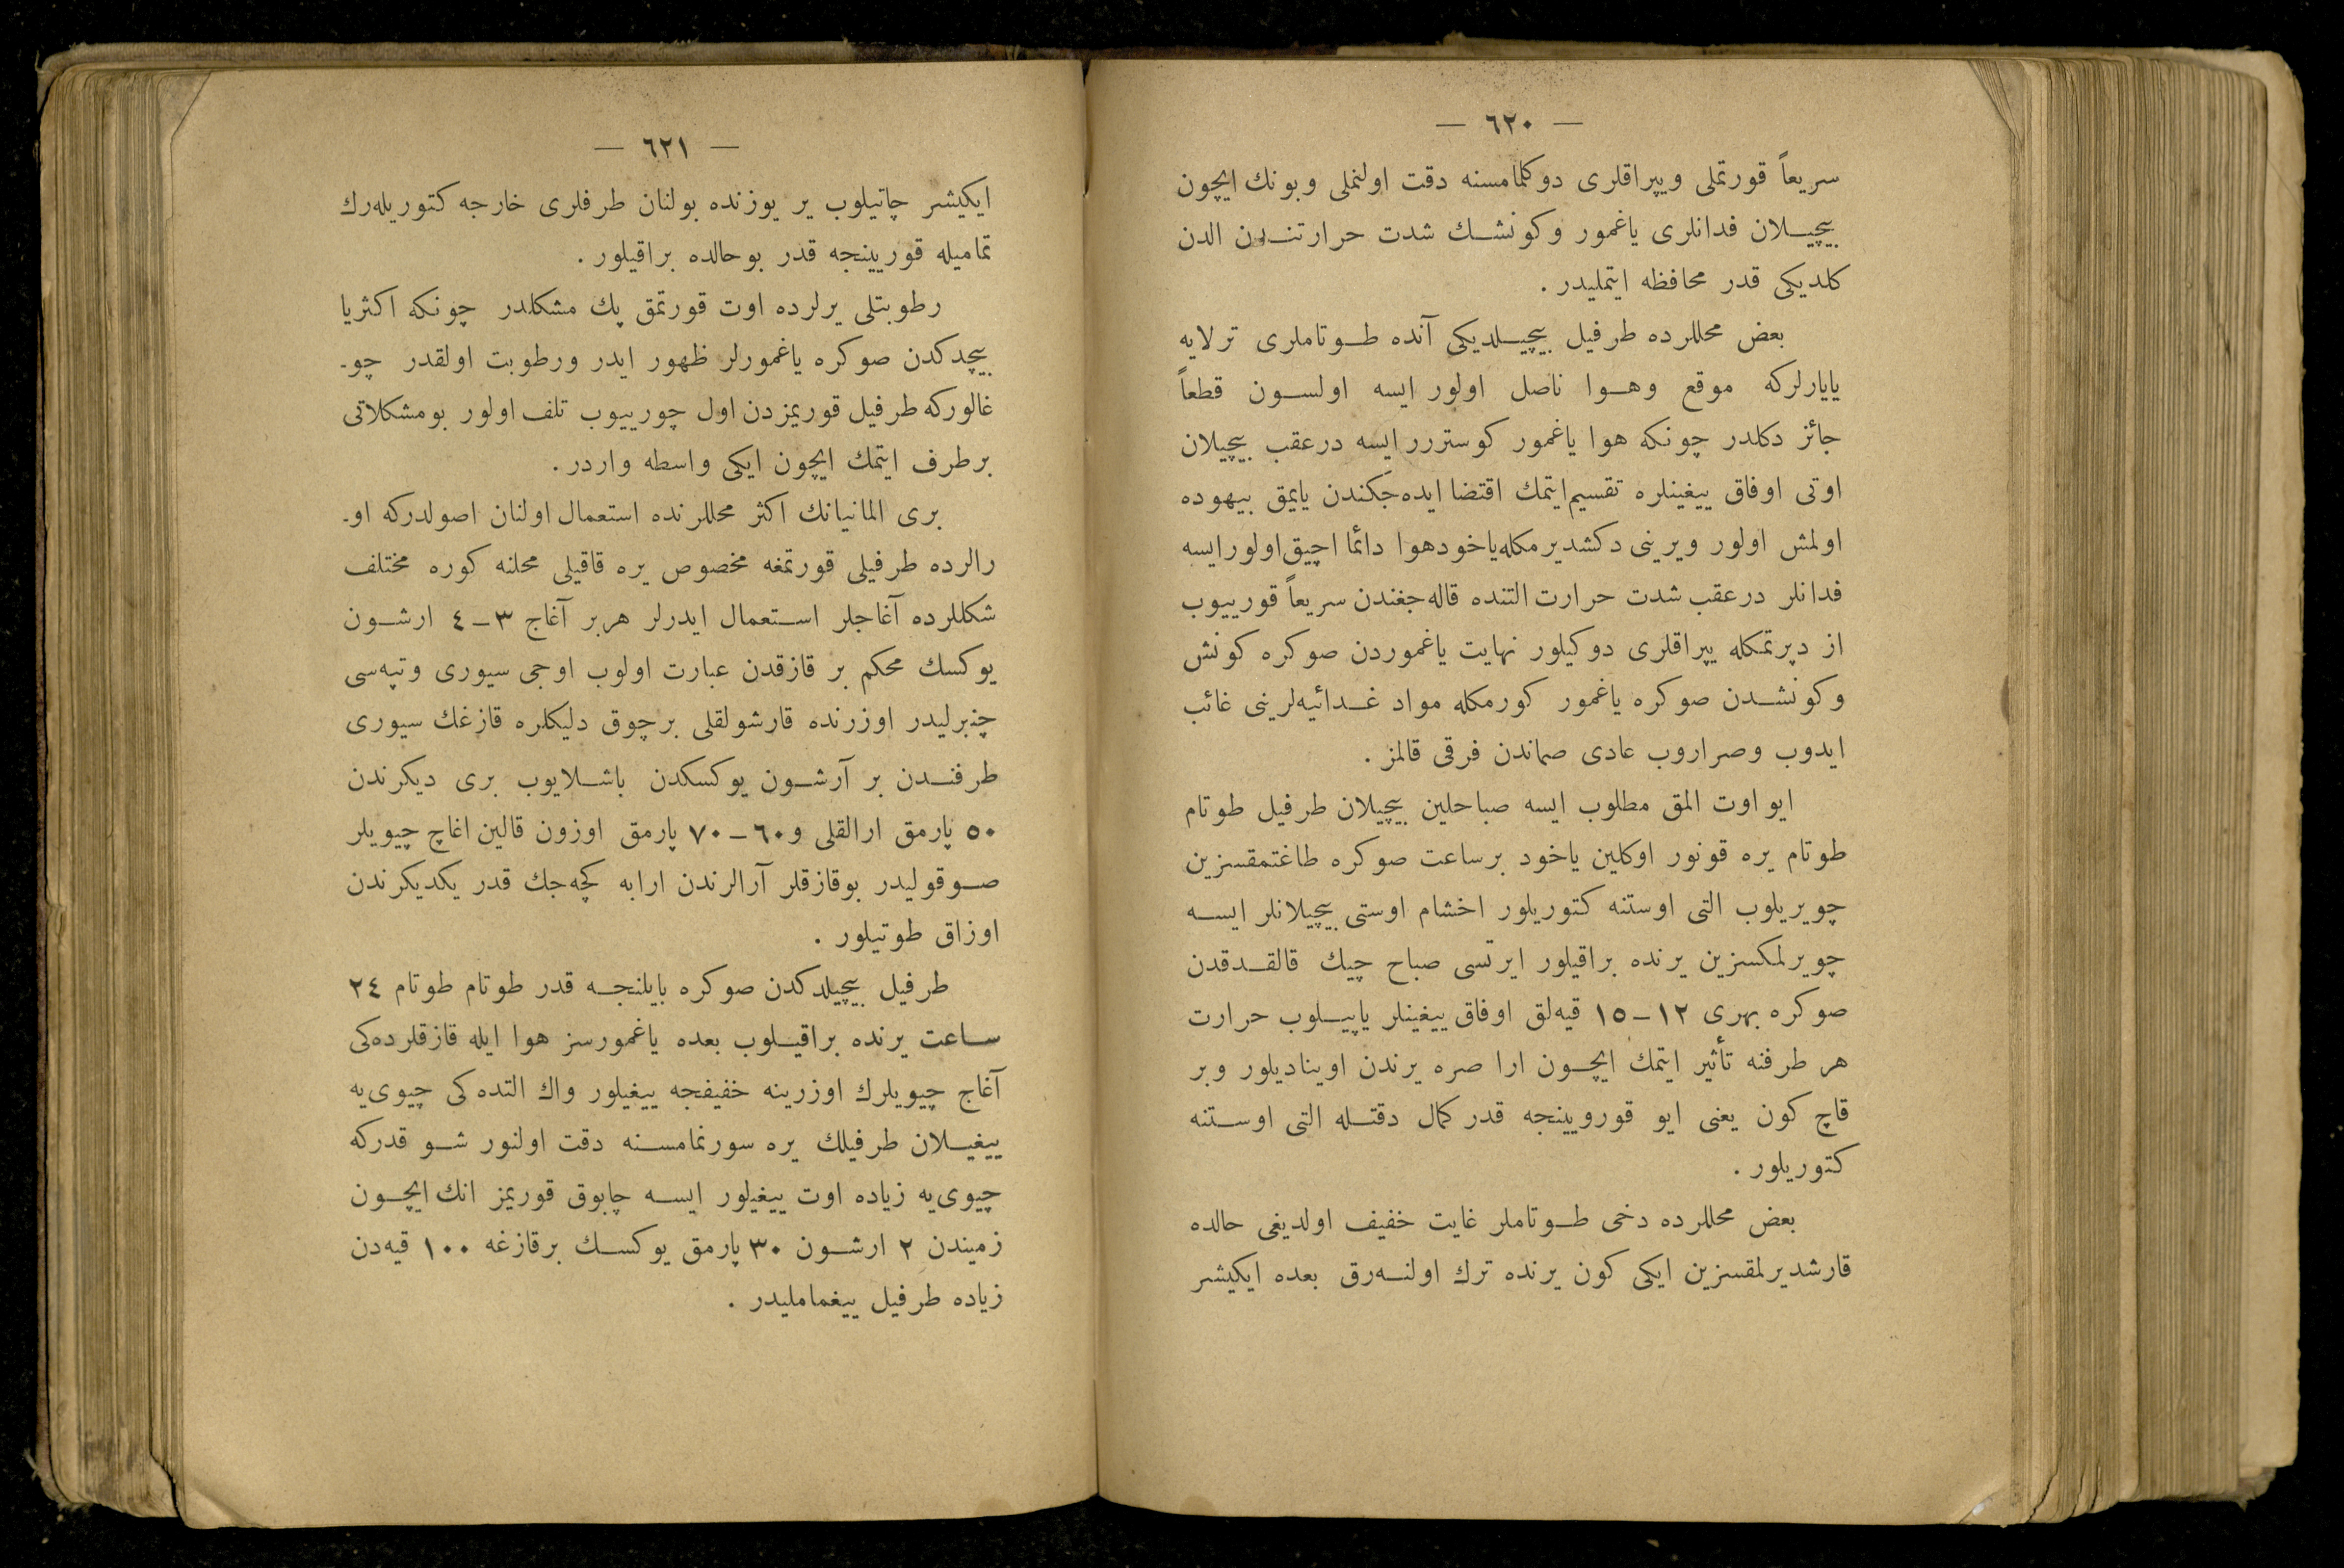 — ٦٢٠ —
سريعاً قورتملى ويپراقلرى دوكلمامسنه دقت اولنملى وبونك ايچون
بيچيلان فدانلرى ياغمور وكونشك شدت حرارتندن الدن
كلديكى قدر محافظه ايتمليدر .
بعض محللرده طرفيل بيچيلديكى آنده طوتاملرى ترلايه
يايارلركه موقع وهوا ناصل اولور ايسه اولسون قطعاً
جائز دكلدر چونكه هوا ياغمور كوسترر ايسه درعقب بيچيلان
اوتى اوفاق ييغينلره تقسيم ايتمك اقتضا ايده جكندن يايمق بيهوده
اولمش اولور ويرينى دكشديرمكله ياخود هوا دائما اچيق اولور ايسه
فدانلر درعقب شدت حرارت التنده قاله جغندن سريعاً قورييوب
از دپرتمكله يپراقلرى دوكيلور نهايت ياغموردن صوكره كونش
وكونشدن صوكره ياغمور كورمكله مواد غدائيه لرينى غائب
ايدوب وصراروب عادى صماندن فرقى قالمز .
ايو اوت المق مطلوب ايسه صباحلين بيچيلان طرفيل طوتام
طوتام يره قونور اوكلين ياخود برساعت صوكره طاغتمقسزين
چويريلوب التى اوستنه كتوريلور اخشام اوستى بيچيلانلر ايسه
چويرلمكسزين يرنده براقيلور ايرتسى صباح چيك قالقدقدن
صوكره بهرى ١٢–١٥ قيه لق اوفاق ييغينلر ياپيلوب حرارت
هر طرفنه تأثير ايتمك ايچون ارا صره يرندن اويناديلور وبر
قاچ كون يعنى ايو قورويينجه قدر كمال دقتله التى اوستنه
كتوريلور .
بعض محللرده دخى طوتاملر غايت خفيف اولديغى حالده
قارشديرلمقسزين ايكى كون يرنده ترك اولنه رق بعده ايكيشر
— ٦٢١ —
ايكيشر چاتيلوب ير يوزنده بولنان طرفلرى خارجه كتوريله رك
تماميله قوريينجه قدر بوحالده براقيلور .
رطوبتلى يرلرده اوت قورتمق پك مشكلدر چونكه اكثريا
بيچدكدن صوكره ياغمورلر ظهور ايدر ورطوبت اولقدر چو-
غالوركه طرفيل قوريمزدن اول چورييوب تلف اولور بومشكلاتى
برطرف ايتمك ايچون ايكى واسطه واردر .
برى المانيانك اكثر محللرنده استعمال اولنان اصولدركه او-
رالرده طرفيلى قورتمغه مخصوص يره قاقيلى محلنه كوره مختلف
شكللرده آغاجلر استعمال ايدرلر هربر آغاج ٣–٤ ارشون
يوكسك محكم بر قازقدن عبارت اولوب اوجى سيورى وتپه سى
چنبرليدر اوزرنده قارشولقلى برچوق دليكلره قازغك سيورى
طرفندن بر آرشون يوكسكدن باشلايوب برى ديكرندن
٥٠ پارمق ارالقلى و٦٠–٧٠ پارمق اوزون قالين اغاچ چيويلر
صوقوليدر بوقازقلر آرالرندن ارابه كچه جك قدر يكديكرندن
اوزاق طوتيلور .
طرفيل بيچيلدكدن صوكره بايلنجه قدر طوتام طوتام ٢٤
ساعت يرنده براقيلوب بعده ياغمورسز هوا ايله قازقلرده كى
آغاج چيويلرك اوزرينه خفيفجه ييغيلور واك التده كى چيوى يه
ييغيلان طرفيلك يره سورنمامسنه دقت اولنور شو قدركه
چيوى يه زياده اوت ييغيلور ايسه چابوق قوريمز انك ايچون
زميندن ٢ ارشون ٣٠ پارمق يوكسك برقازغه ١٠٠ قيه دن
زياده طرفيل ييغمامليدر .